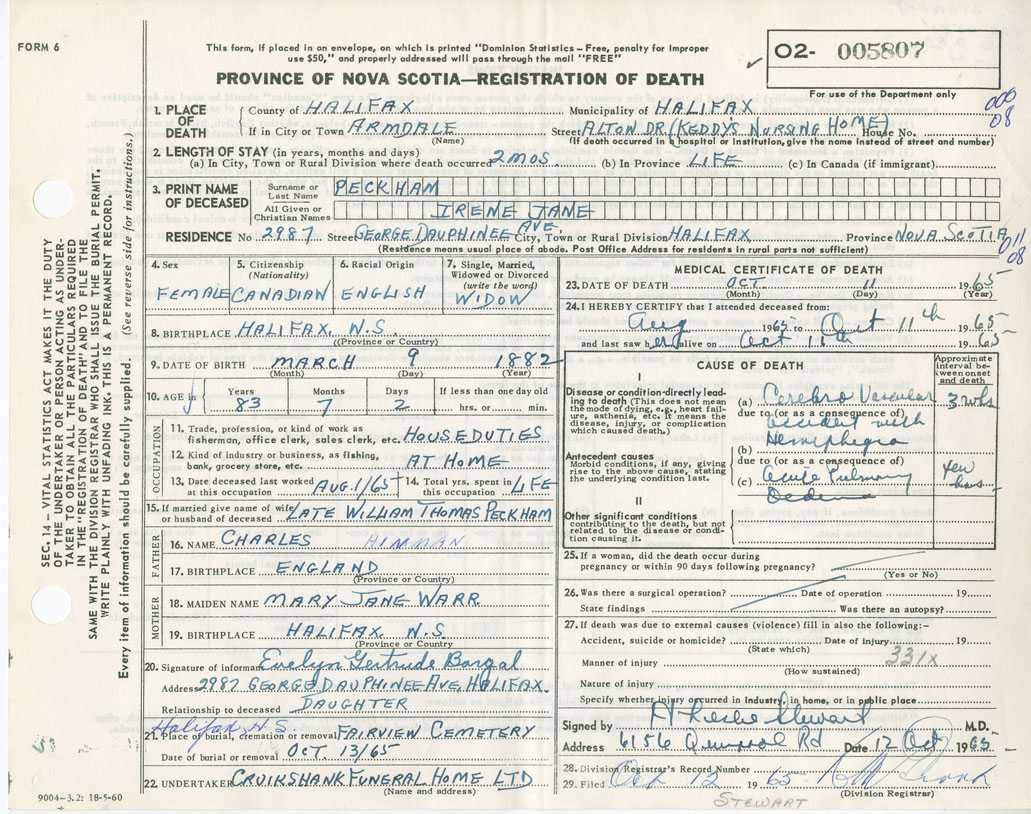 FORM 6
This form, if placed in an envelope, on which is printed "Dominion Statistics – Free, penalty for improper
use $50," and properly addressed will pass through the mail "FREE"
PROVINCE OF NOVA SCOTIA—REGISTRATION OF DEATH
O2- 005807
For use of the Department only
1. PLACE OF DEATH
County of HALIFAX Municipality of HALIFAX 000 08
If in City or Town ARMDALE Street ALTON DR. (KEDDY'S NURSING HOME) House No.
(Name) (If death occurred in a hospital or institution, give the name instead of street and number)
2. LENGTH OF STAY (in years, months and days)
(a) In City, Town or Rural Division where death occurred 2 MOS (b) In Province LIFE (c) In Canada (if immigrant)
3. PRINT NAME OF DECEASED
Surname or Last Name PECKHAM
All Given or Christian Names IRENE JANE
RESIDENCE No. 2987 Street GEORGE DAUPHINEE AVE. City, Town or Rural Division HALIFAX Province NOVA SCOTIA 011 08
(Residence means usual place of abode. Post Office Address for residents in rural parts not sufficient)
4. Sex FEMALE
5. Citizenship (Nationality) CANADIAN
6. Racial Origin ENGLISH
7. Single, Married, Widowed or Divorced (write the word) WIDOW
8. BIRTHPLACE HALIFAX N.S.
(Province or Country)
9. DATE OF BIRTH MARCH 9 1882
(Month) (Day) (Year)
10. AGE in Years 83 Months 7 Days 2 If less than one day old hrs. or min.
OCCUPATION
11. Trade, profession, or kind of work as
fisherman, office clerk, sales clerk, etc. HOUSEDUTIES
12. Kind of industry or business, as fishing,
bank, grocery store, etc. AT HOME
13. Date deceased last worked at this occupation AUG. 1/65
14. Total yrs. spent in this occupation LIFE
15. If married give name of wife
or husband of deceased LATE WILLIAM THOMAS PECKHAM
FATHER
16. NAME CHARLES HINMAN
17. BIRTHPLACE ENGLAND
(Province or Country)
MOTHER
18. MAIDEN NAME MARY JANE WARR
19. BIRTHPLACE HALIFAX N.S.
(Province or Country)
20. Signature of informant Evelyn Gertrude Bargal
Address 2987 GEORGE DAUPHINEE AVE, HALIFAX
Relationship to deceased DAUGHTER
Halifax, N.S.
21. Place of burial, cremation or removal FAIRVIEW CEMETERY
Date of burial or removal OCT. 13/65
22. UNDERTAKER CRUIKSHANK FUNERAL HOME LTD
(Name and address)
9004—3.2: 18-5-60
MEDICAL CERTIFICATE OF DEATH
23. DATE OF DEATH OCT 11 1965
(Month) (Day) (Year)
24. I HEREBY CERTIFY that I attended deceased from:
Aug 1965 to Oct 11th 1965
and last saw her alive on Oct 11th 1965
CAUSE OF DEATH
Approximate interval between onset and death
I
Disease or condition directly leading to death (This does not mean the mode of dying, e.g., heart failure, asthenia, etc. It means the disease, injury, or complication which caused death.)
(a) Cerebro Vascular 3 wks
due to (or as a consequence of)
accident with
Hemiphegia
(b)
Antecedent causes
Morbid conditions, if any, giving rise to the above cause, stating the underlying condition last.
due to (or as a consequence of)
(c) Acute Pulmonary few hours
Oedema
II
Other significant conditions
contributing to the death, but not related to the disease or condition causing it.
25. If a woman, did the death occur during
pregnancy or within 90 days following pregnancy?
(Yes or No)
26. Was there a surgical operation? Date of operation 19
State findings Was there an autopsy?
27. If death was due to external causes (violence) fill in also the following:—
Accident, suicide or homicide? Date of injury 19
(State which) 331X
Manner of injury
(How sustained)
Nature of injury
Specify whether injury occurred in industry, in home, or in public place
Signed by H. Leslie Stewart M.D.
Address 6156 Quinpool Rd Date 12 Oct 1965
28. Division Registrar's Record Number
29. Filed Oct 12 1965
(Division Registrar)
STEWART
SEC. 14 – VITAL STATISTICS ACT MAKES IT THE DUTY
OF THE UNDERTAKER OR PERSON ACTING AS UNDER-
TAKER TO OBTAIN ALL THE PARTICULARS REQUIRED
IN THE "REGISTRATION OF DEATH" AND TO FILE THE
SAME WITH THE DIVISION REGISTRAR WHO SHALL ISSUE THE BURIAL PERMIT.
WRITE PLAINLY WITH UNFADING INK. THIS IS A PERMANENT RECORD.
Every item of information should be carefully supplied. (See reverse side for instructions.)